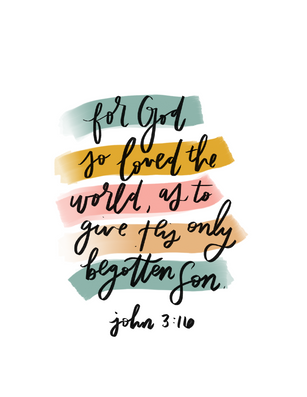 for God
so loved the
world, as to
give His only
begotten Son.
john 3:16